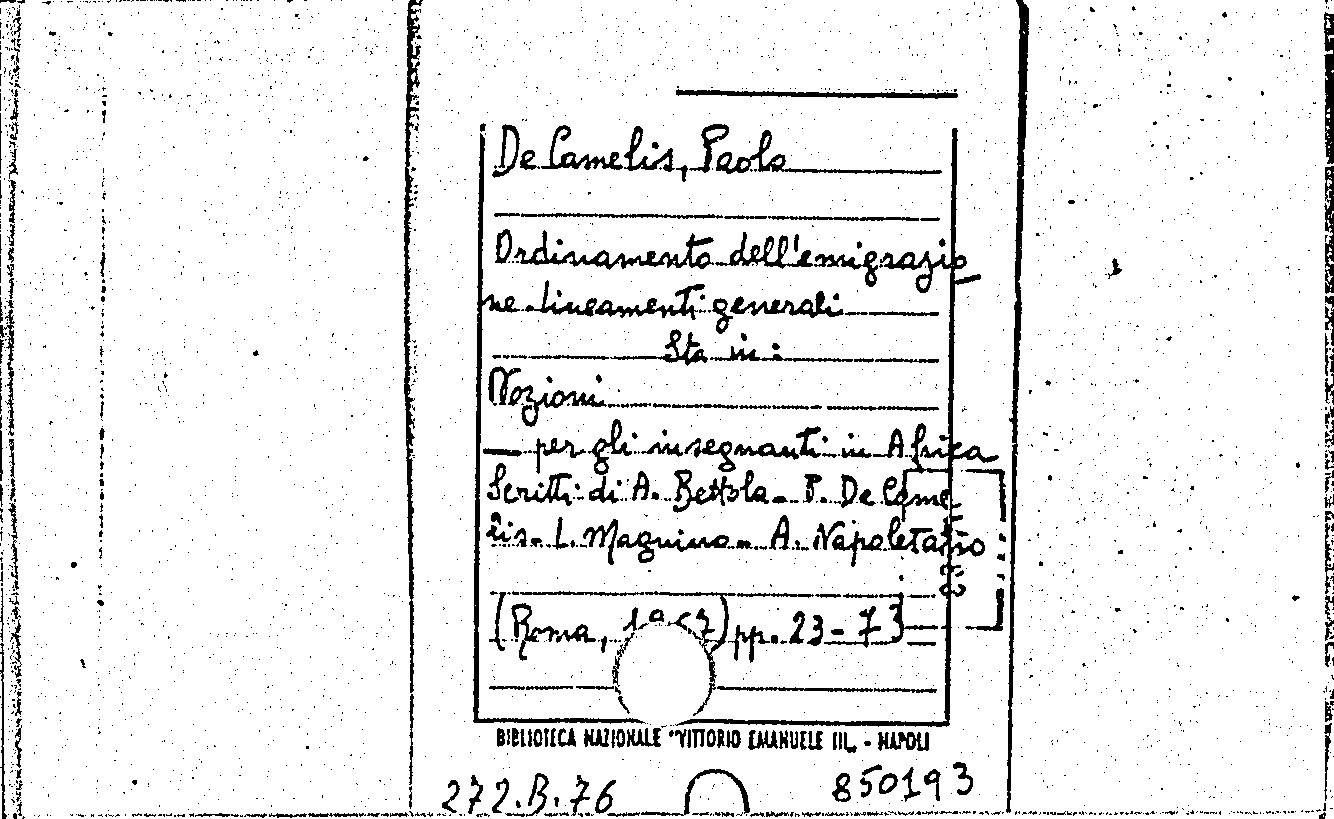 De Camelis, Paolo
Ordinamento dell'emigrazio
ne. Lineamenti generali
Sta in:
Nozioni
— per gli insegnanti in Africa
Scritti di A. Bettola - P. De Came
lis - L. Magnino - A. Napoletano
(Roma, 1967) pp. 23-73
BIBLIOTECA NAZIONALE "VITTORIO EMANUELE III„ - NAPOLI
272.B.76
850193